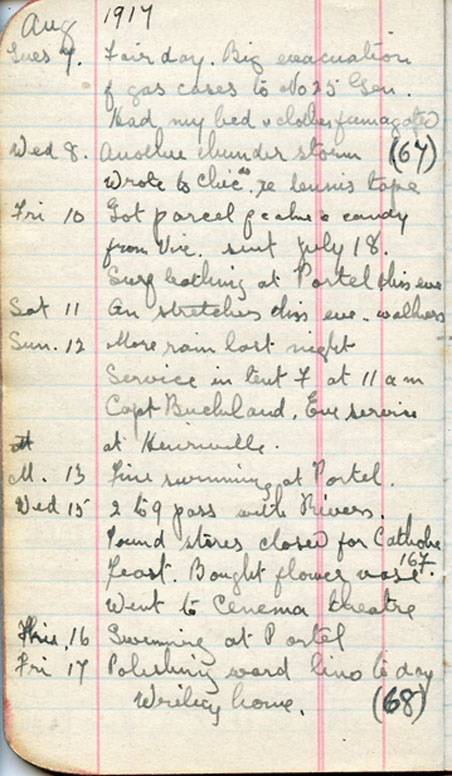 Aug 1917
Tues 7. Fair day. Big evacuation
of gas cases to No 25 Gen.
Had my bed & clothes fumagated
Wed 8. Another thunder storm (67)
Wrote to Chic. re tennis tape
Fri 10 Got parcel of cake & candy
from Vic. sent July 18.
Surf bathing at Portel this eve
Sat 11 On stretchers this eve - walkers
Sun. 12 More rain last night
Service in tent 7 at 11 am
Capt Buckland. Eve service
at
M. 13 Fine swimming at Portel.
Wed 15 2 to 9 pass with Rivers.
Found stores closed for Catholic
Feast. Bought flower vase 167.
Went to Cenema theatre
Thu. 16 Swimming at Portel
Fri 17 Polishing ward lino to day
Writing home. (68)